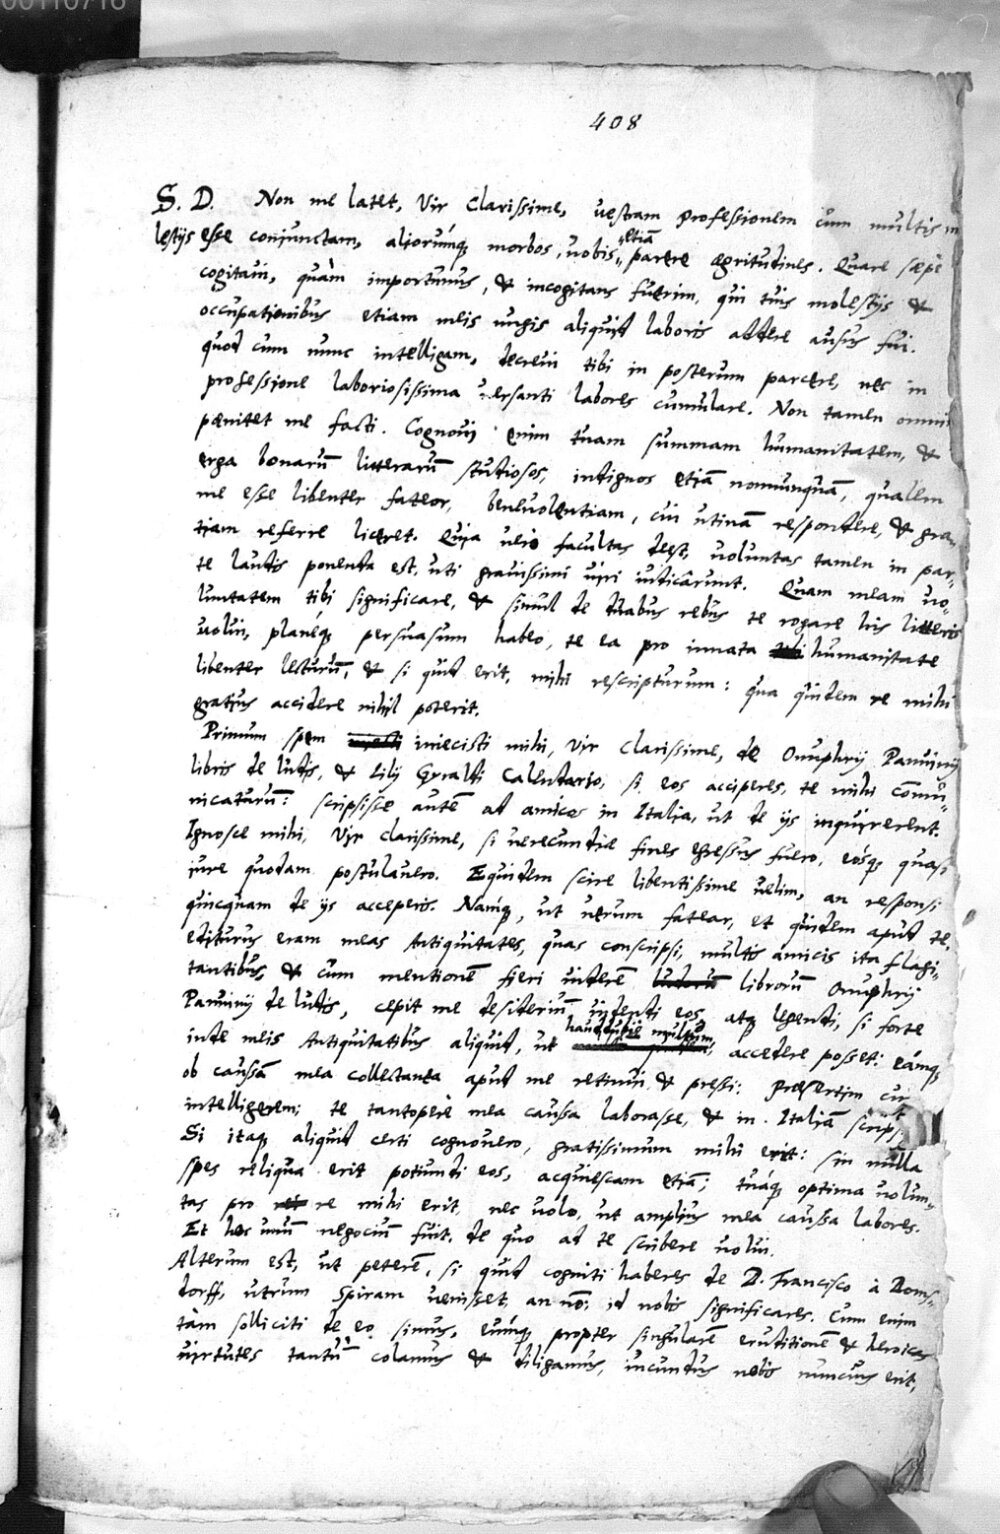 00110716
408
S. D. Non me latet, Vir Clarissime, uestram Professionem cum multis m
lestijs esse conjunctam, aliorumq́ morbos, uobis etiā parere ægritudines. Quare sæpè
cogitaui, quàm importunus, & incogitans fuerim, qui tuis molestijs &
occupationibus etiam meis nugis aliquid laboris addere ausus fui.
quod cum nunc intelligam, decreui tibi in posterum parcere, nec in
professione laboriosissima uersanti labores cumulare. Non tamen omni
pænitet me facti. Cognoui enim tuam summam humanitatem, &
erga bonarū litterarū studiosos, indignos etiā nonnunquā, qualem
me esse libenter fateor, beneuolentiam, cui utinā respondere, & gra-
tiam referre liceret. Quia uerò facultas deest, uoluntas tamen in par-
te laudis ponenda est, uti grauissimi uiri iudicârunt. Quam meam uo-
luntatem tibi significare, & simul de duabus rebus te rogare his litteris
uolui, planéq́ persuasum habeo, te ea pro innata humanitate
libenter lecturū, & si quid erit, mihi rescripturum: qua quidem re mihi
gratius accidere nihil poterit.
Primum spem iniecisti mihi, Vir Clarissime, de Onuphrij Panuinij
libris de ludis, & Lilij Gyraldi Calendario, si eos acciperes, te mihi commu-
nicaturū: scripsisse autē ad amicos in Italia, ut de ijs inquirerent.
Ignosce mihi, Vir clarissime, si uerecundiæ fines egressus fuero, eósq́ quasi
iure quodam postulauero. Equidem scire libentissime uelim, an responsi
quicquam de ijs acceperis. Namq́, ut uerum fatear, et quidem apud te,
editurus eram meas Antiquitates, quas conscripsi, multis amicis ita flagi-
tantibus, & cum mentionē fieri uiderē librorū Onuphrij
Panuinij de ludis, cepit me desideriū uidendi eos, atq́ legendi, si forte
inde meis Antiquitatibus aliquid, ut haud dubiè multum, accedere posset: eámq́
ob caussā mea collectanea apud me retinui & pressi: Præsertim cū
intelligerem, te tantoperè mea caussa laborasse, & in Italiā scrip
Si itaq́ aliquid certi cognouero, gratissimum mihi erit: sin nulla
spes reliqua erit potiundi eos, acquiescam etiā; tuáq́ optima uolun-
tas pro re mihi erit, nec uolo, ut amplius mea caussa labores.
Et hoc unū negociū fuit, de quo ad te scribere uolui.
Alterum est, ut peterē, si quid cogniti haberes de D. Francisco à Doms-
dorff, utrum Spiram uenisset, an nō: id nobis significares. Cum enim
tàm solliciti de eo simus, eumq́ propter singularē eruditionē & heroicas
uirtutes tantū colamus & diligamus, iucundus nobis nuncius erit,